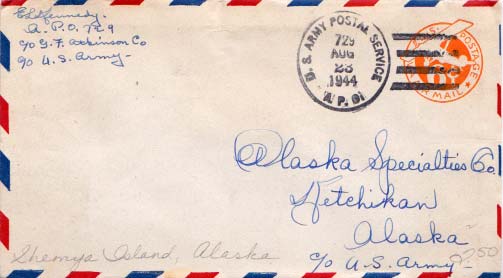 E L Kennedy.
A. P. O. 729
c/o G. F. Atkinson Co
c/o U. S. Army-
U. S. ARMY POSTAL SERVICE
729
AUG
23
1944
A. P. O.
U.S. POSTAGE
6
AIR MAIL
Alaska Specialties Co.
Ketchikan
Alaska
c/o U. S. Army-
Shemya Island, Alaska
2.50